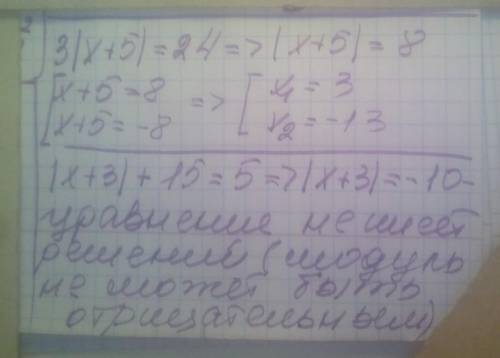 3|x+5|=24=>|x+5|=8
[x+5=8 => [x₁=3
[x+5=-8 [x₂=-13
|x+3|+15=5=>|x+3|=-10-
уравнение не имеет
решений (модуль
не может быть
отрицательным)